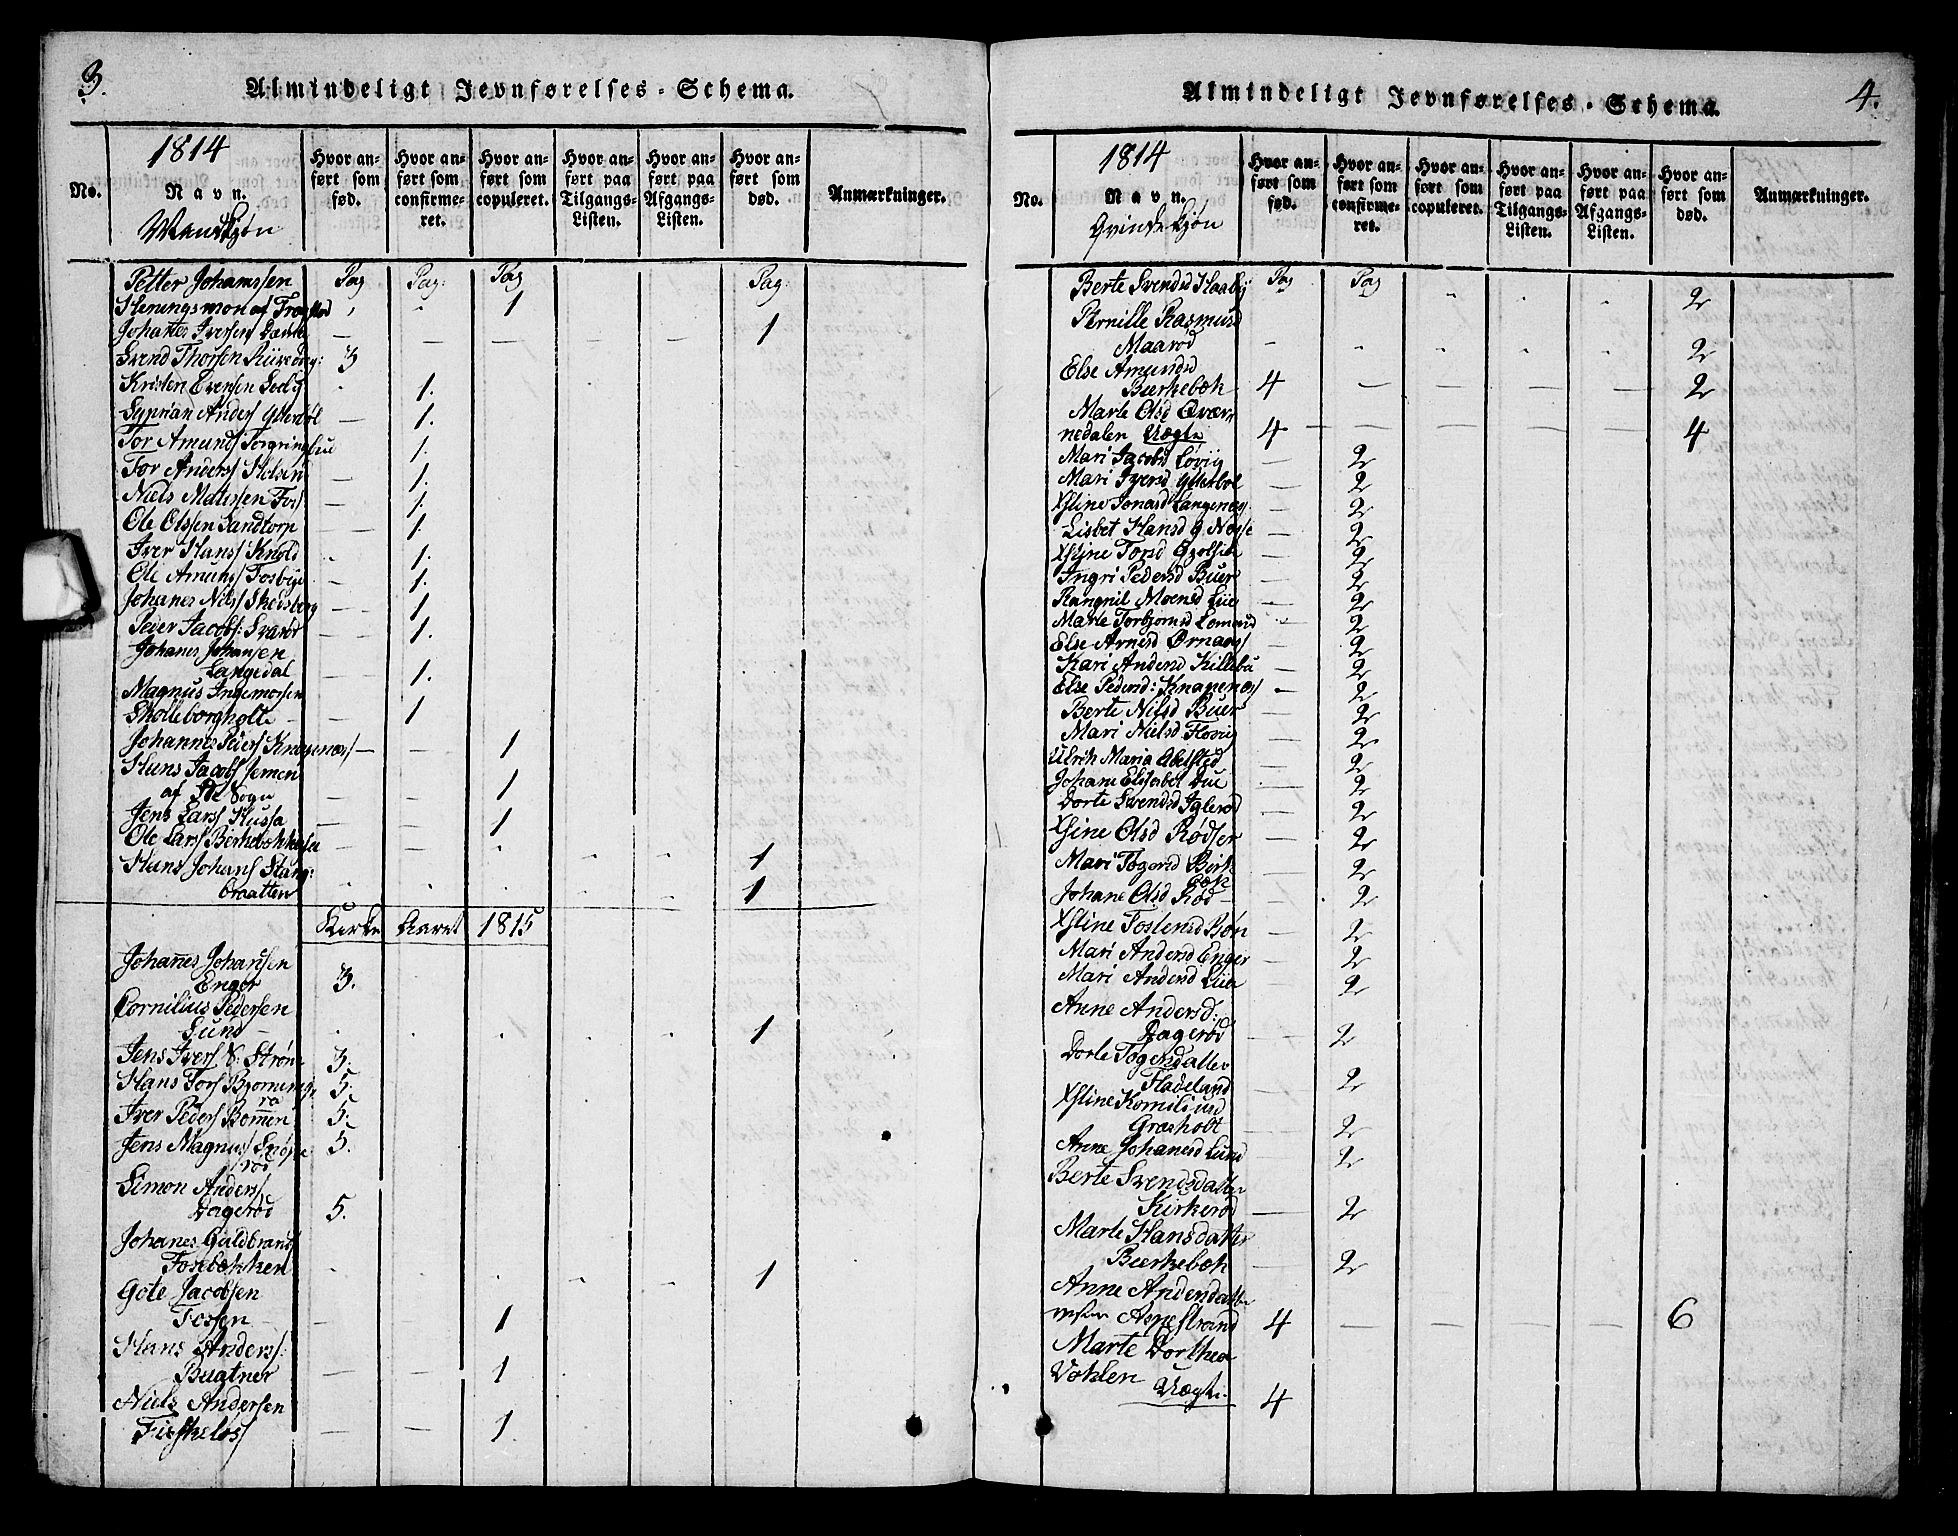 3.
Almindeligt Jevnførelses-Schema.
1814
No.
Navn.
Mandkjøn
Hvor anført som fød.
Hvor anført som confirmeret.
Hvor anført som copuleret.
Hvor anført paa Tilgangs-Listen.
Hvor anført paa Afgangs-Listen.
Hvor anført som død.
Anmærkninger.
Petter Johanssen Pag Pag: Pag Pag:
1
Johannes Iversen - - - - - 1
Svend Thorsen 3
Kristen Evensen - 1.
Syprian Anders Ytterbøl - 1.
Tor Amunds - 1.
Tor Anders - 1.
Niels Matissen Fos - 1.
Ole Olssen Sandtorp - 1
Iver Hans Knold - 1.
Ole Amunds Fosbye - 1.
Johanes Nils Skedsberg - - 1
Peder Jacobs: Svarød - - 1.
Johanes Johansen
Langedal - 1.
Magnus Ingemorsen
Skolleborgholte - - 1
Johannes Peders Knapenæs - - 1
Hans Jacobs
af Sogn - - 1
Jens Lars Hussa - - 1
Ole Lars - - 1
Hans Johans Stang:
braatten 1
Kirke Aaret 1815
Johannes Johansen
Enger 3.
Cornilius Pedersen
Lund - 1
Jens Ivers N: Strøm 3.
Hans Tors 5.
Iver Peders Bommen 5.
Jens Magnus 5.
rød
Simon Anders
Dagerød 5.
Johanes Guldbrands
Fosebækken 1
Gote Jacobsen
Fossen - - 1
Hans Anders:
Bugtner - - 1
Niels Andersen
- - 1.
4.
Almindeligt Jevnførelses-Schema.
1814
No.
Navn.
Qvindekjøn
Hvor anført som fød.
Hvor anført som confirmeret.
Hvor anført som copuleret.
Hvor anført paa Tilgangs-Listen.
Hvor anført paa Afgangs-Listen.
Hvor anført som død.
Anmærkninger.
Berte Svendsd Haaby Pag Pag 2
Pernille Rasmusd
Maarød - 2
Else Amundsd
Bierkebæk 4 - - - - 2
Marte Olsd Qværnedalen
Uægte 4 - - - - 4
Mari Jacobsd Løvig - 2
Mari Iversd Ytterbøl - 2
Xstine Jonasd Langenæs - 2
Lisbet Hansd - 2
Xstine Torsd - 2
Ingri Pedersd Buer - 2
Rangnil Moensd Lie - 2
Marte Torbjornsd - 2
Else Arnesd Ørnaas - 2
Kari Andersd Killebu - 2
Else Pedersd: Knapenæs - 2
Berte Nilsd Buer - 2
Mari Nielsd - 2
Ulrik Maria - 2
Johane Elisabet Due - 2
Dorte Svendsd Iglerød - 2
Xstine Olsd Rødser - 2
Mari Togersd Birkbæk - 2
Johane Olsd Rød - 2
Xstine Tostensd Bøn - 2
Mari Andersd Enger - 2
Mari Andersd Lie - 2
Anne Andersd:
Dagerød - 2
Dorte Togersdatter
Fladeland - 2
Xstine Korniliusd
Græsholt - 2
Anne Johanesd Lund - 2
Berte Svendsdatter
Kirkerød - 2
Marte Hansdatter
Bierkebæk - 2
Anne Andersdatter
4 - - - - 6
Marte Dorthea
Vohlen Uægte 4